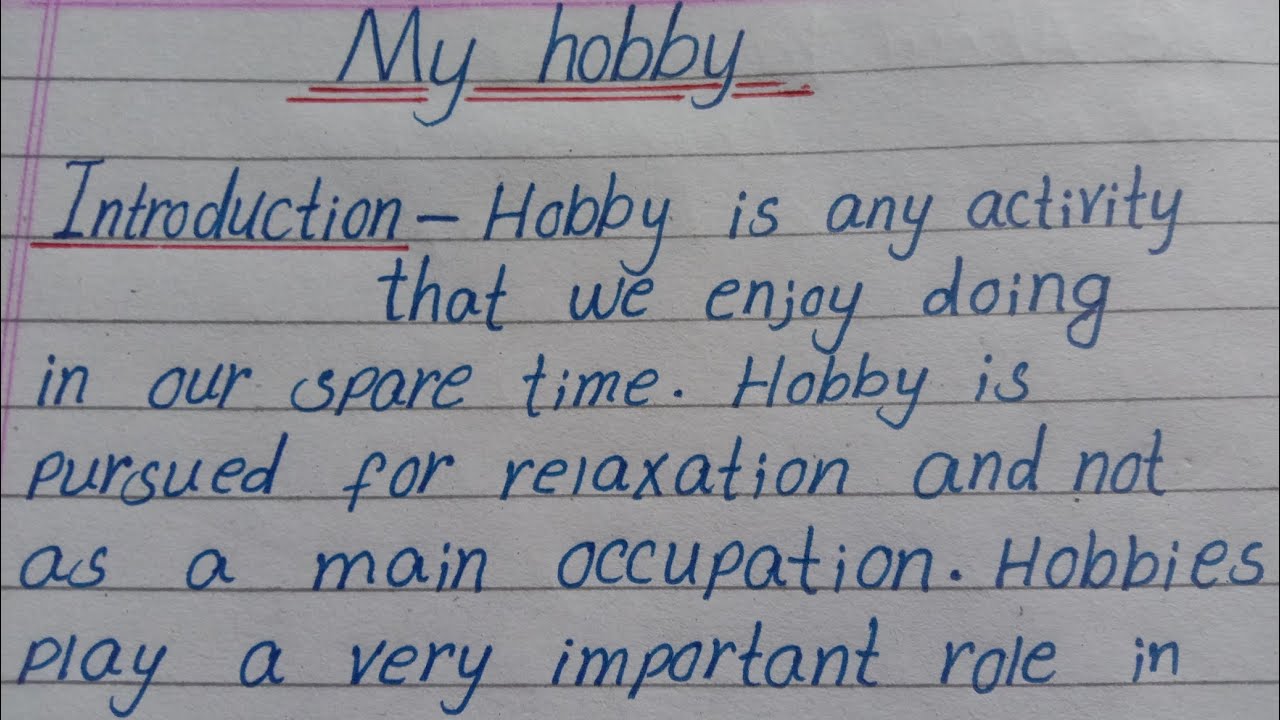 My hobby
Introduction - Hobby is any activity
that we enjoy doing
in our spare time. Hobby is
pursued for relaxation and not
as a main occupation. Hobbies
play a very important role in